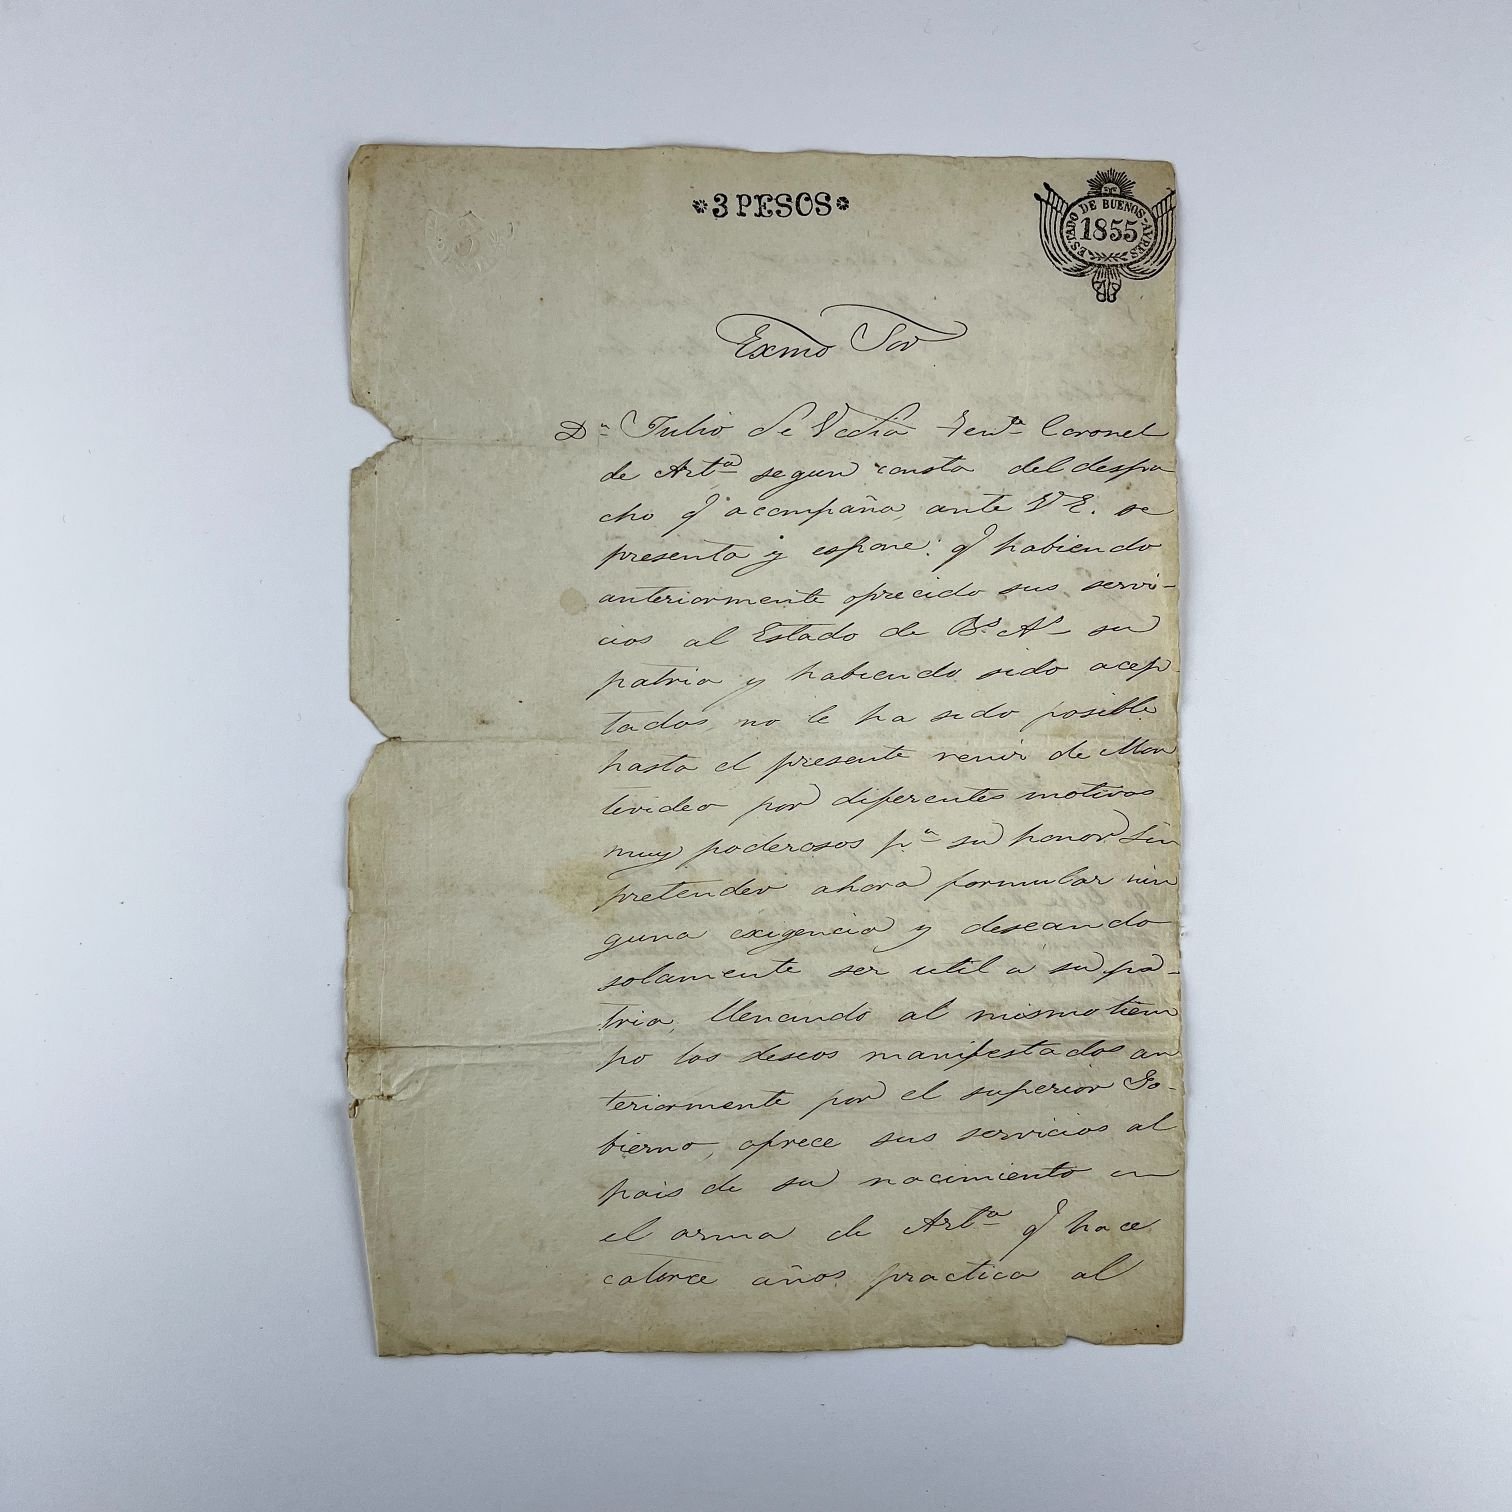 *3 PESOS*
ESTADO DE BUENOS-AYRES
1855
Exmo Sor
Dn Julio de Vedia Tente Coronel
de Arta segun consta del despa
cho q acompaña, ante V E. se
presenta y espone: q habiendo
anteriormente ofrecido sus servi-
cios al Estado de Bs As su
patria y habiendo sido acep-
tados, no le ha sido posible
hasta el presente venir de Mon
tevideo por diferentes motivos
muy poderosos pa su honor. Sin
pretender ahora formular nin
guna exigencia y deseando
solamente ser util a su pa-
tria, llenando al mismo tiem
po los deseos manifestados an
teriormente por el superior Go-
bierno, ofrece sus servicios al
pais de su nacimiento en
el arma de Arta q hace
catorce años practica al